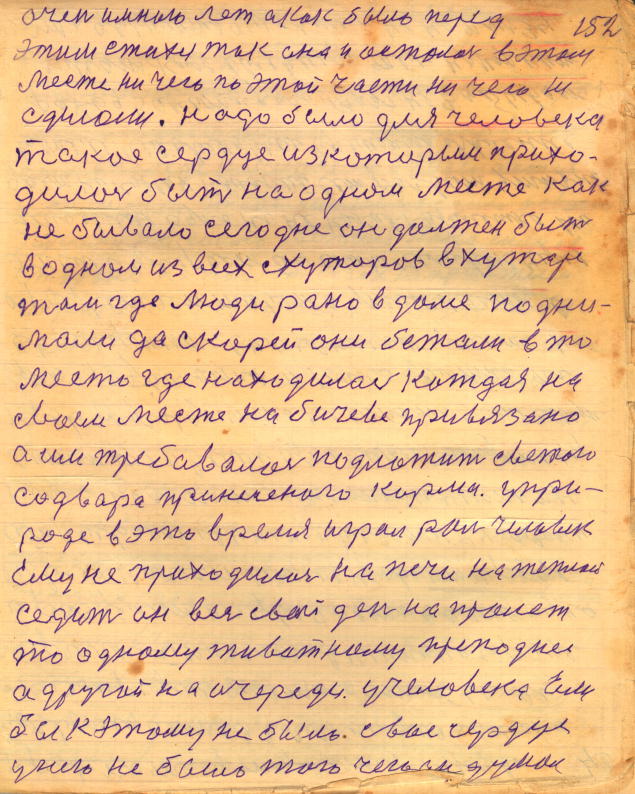 152
очен много лет а как было перед
этим стихи так она и осталос в этом
месте ни чего по этой части ни чего ни
сдилоли. надо было для человека
такое сердце из которым прихо-
дилос быт на одном месте как
не бывало сегодне он должен быт
в одном из всех схуторов в хуторе
там где люди рано в доме подни-
мали да скорей они бежали в то
место где находилас каждая на
своем месте на бичеве привязано
а им требавалос подложит свежого
со двара принесеного корма. упри-
роде в это время играл рол человек
ему не приходилос на печи на теплой
седит он вес свой ден на пролет
то одному животному преподнес
а другой на очереди. у человека если
бы к этому не было. свое сердце
у него не было того чего он думал